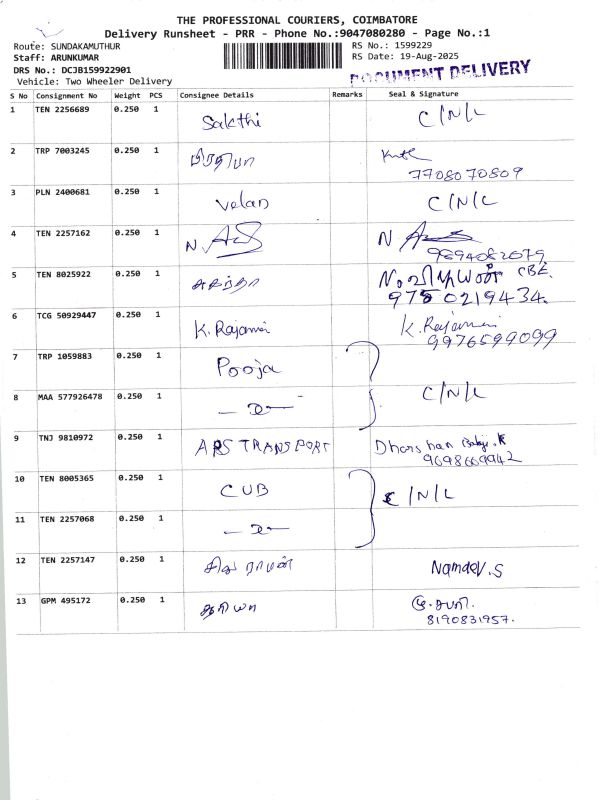 THE PROFESSIONAL COURIERS, COIMBATORE
Delivery Runsheet - PRR - Phone No.:9047080280 - Page No.:1
Route: SUNDAKAMUTHUR
RS No.: 1599229
Staff: ARUNKUMAR
RS Date: 19-Aug-2025
DRS No.: DCJB159922901
DOCUMENT DELIVERY
Vehicle: Two Wheeler Delivery
S No Consignment No Weight PCS Consignee Details Remarks Seal & Signature
1 TEN 2256689 0.250 1 Sakthi C/N/L
2 TRP 7003245 0.250 1 பிரதிபா
7708070809
3 PLN 2400681 0.250 1 Velan C/N/L
4 TEN 2257162 0.250 1 N. N
9894082079
5 TEN 8025922 0.250 1 CBE
9780219434.
6 TCG 50929447 0.250 1 K. Rajamani K. Rajamani
9976599099
7 TRP 1059883 0.250 1 Pooja
8 MAA 577926478 0.250 1 C/N/L
9 TNJ 9810972 0.250 1 ARS TRANSPORT Dharshan Balaji.K
9698669942
10 TEN 8005365 0.250 1 CUB C/N/L
11 TEN 2257068 0.250 1
12 TEN 2257147 0.250 1 Namdev.S
13 GPM 495172 0.250 1
8190831957.